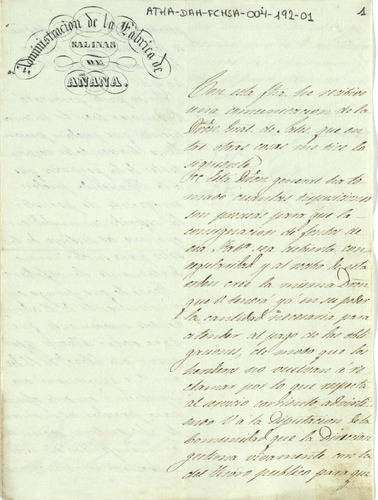 ATHA-DAH-FCHSA-004-192-01
1
Administracion de la Fábrica de
SALINAS
DE
AÑANA.
Con esta fha. he recibido
una comunicacion de la
Dion Gral. de Rentas que en
tre otras cosas me dice lo
siguiente
"Esta Dion general ha to
mado cuantas disposiciones
son precisas para que la
consignacion de fondos de
esa Fabª sea cubierta con
regularidad y al recibo de esta
orden cree la misma Dion
que V. tendrá ya en su poder
la cantidad necesaria para
atender al pago de las obli
gaciones, de modo que los
herederos no vuelvan á re
clamar por lo que respecta
al servicio corriente, advirtien
do V. a la Diputacion de la
Comunidad que la Direccion
gestiona vivamente con la
del Tesoro publico para que